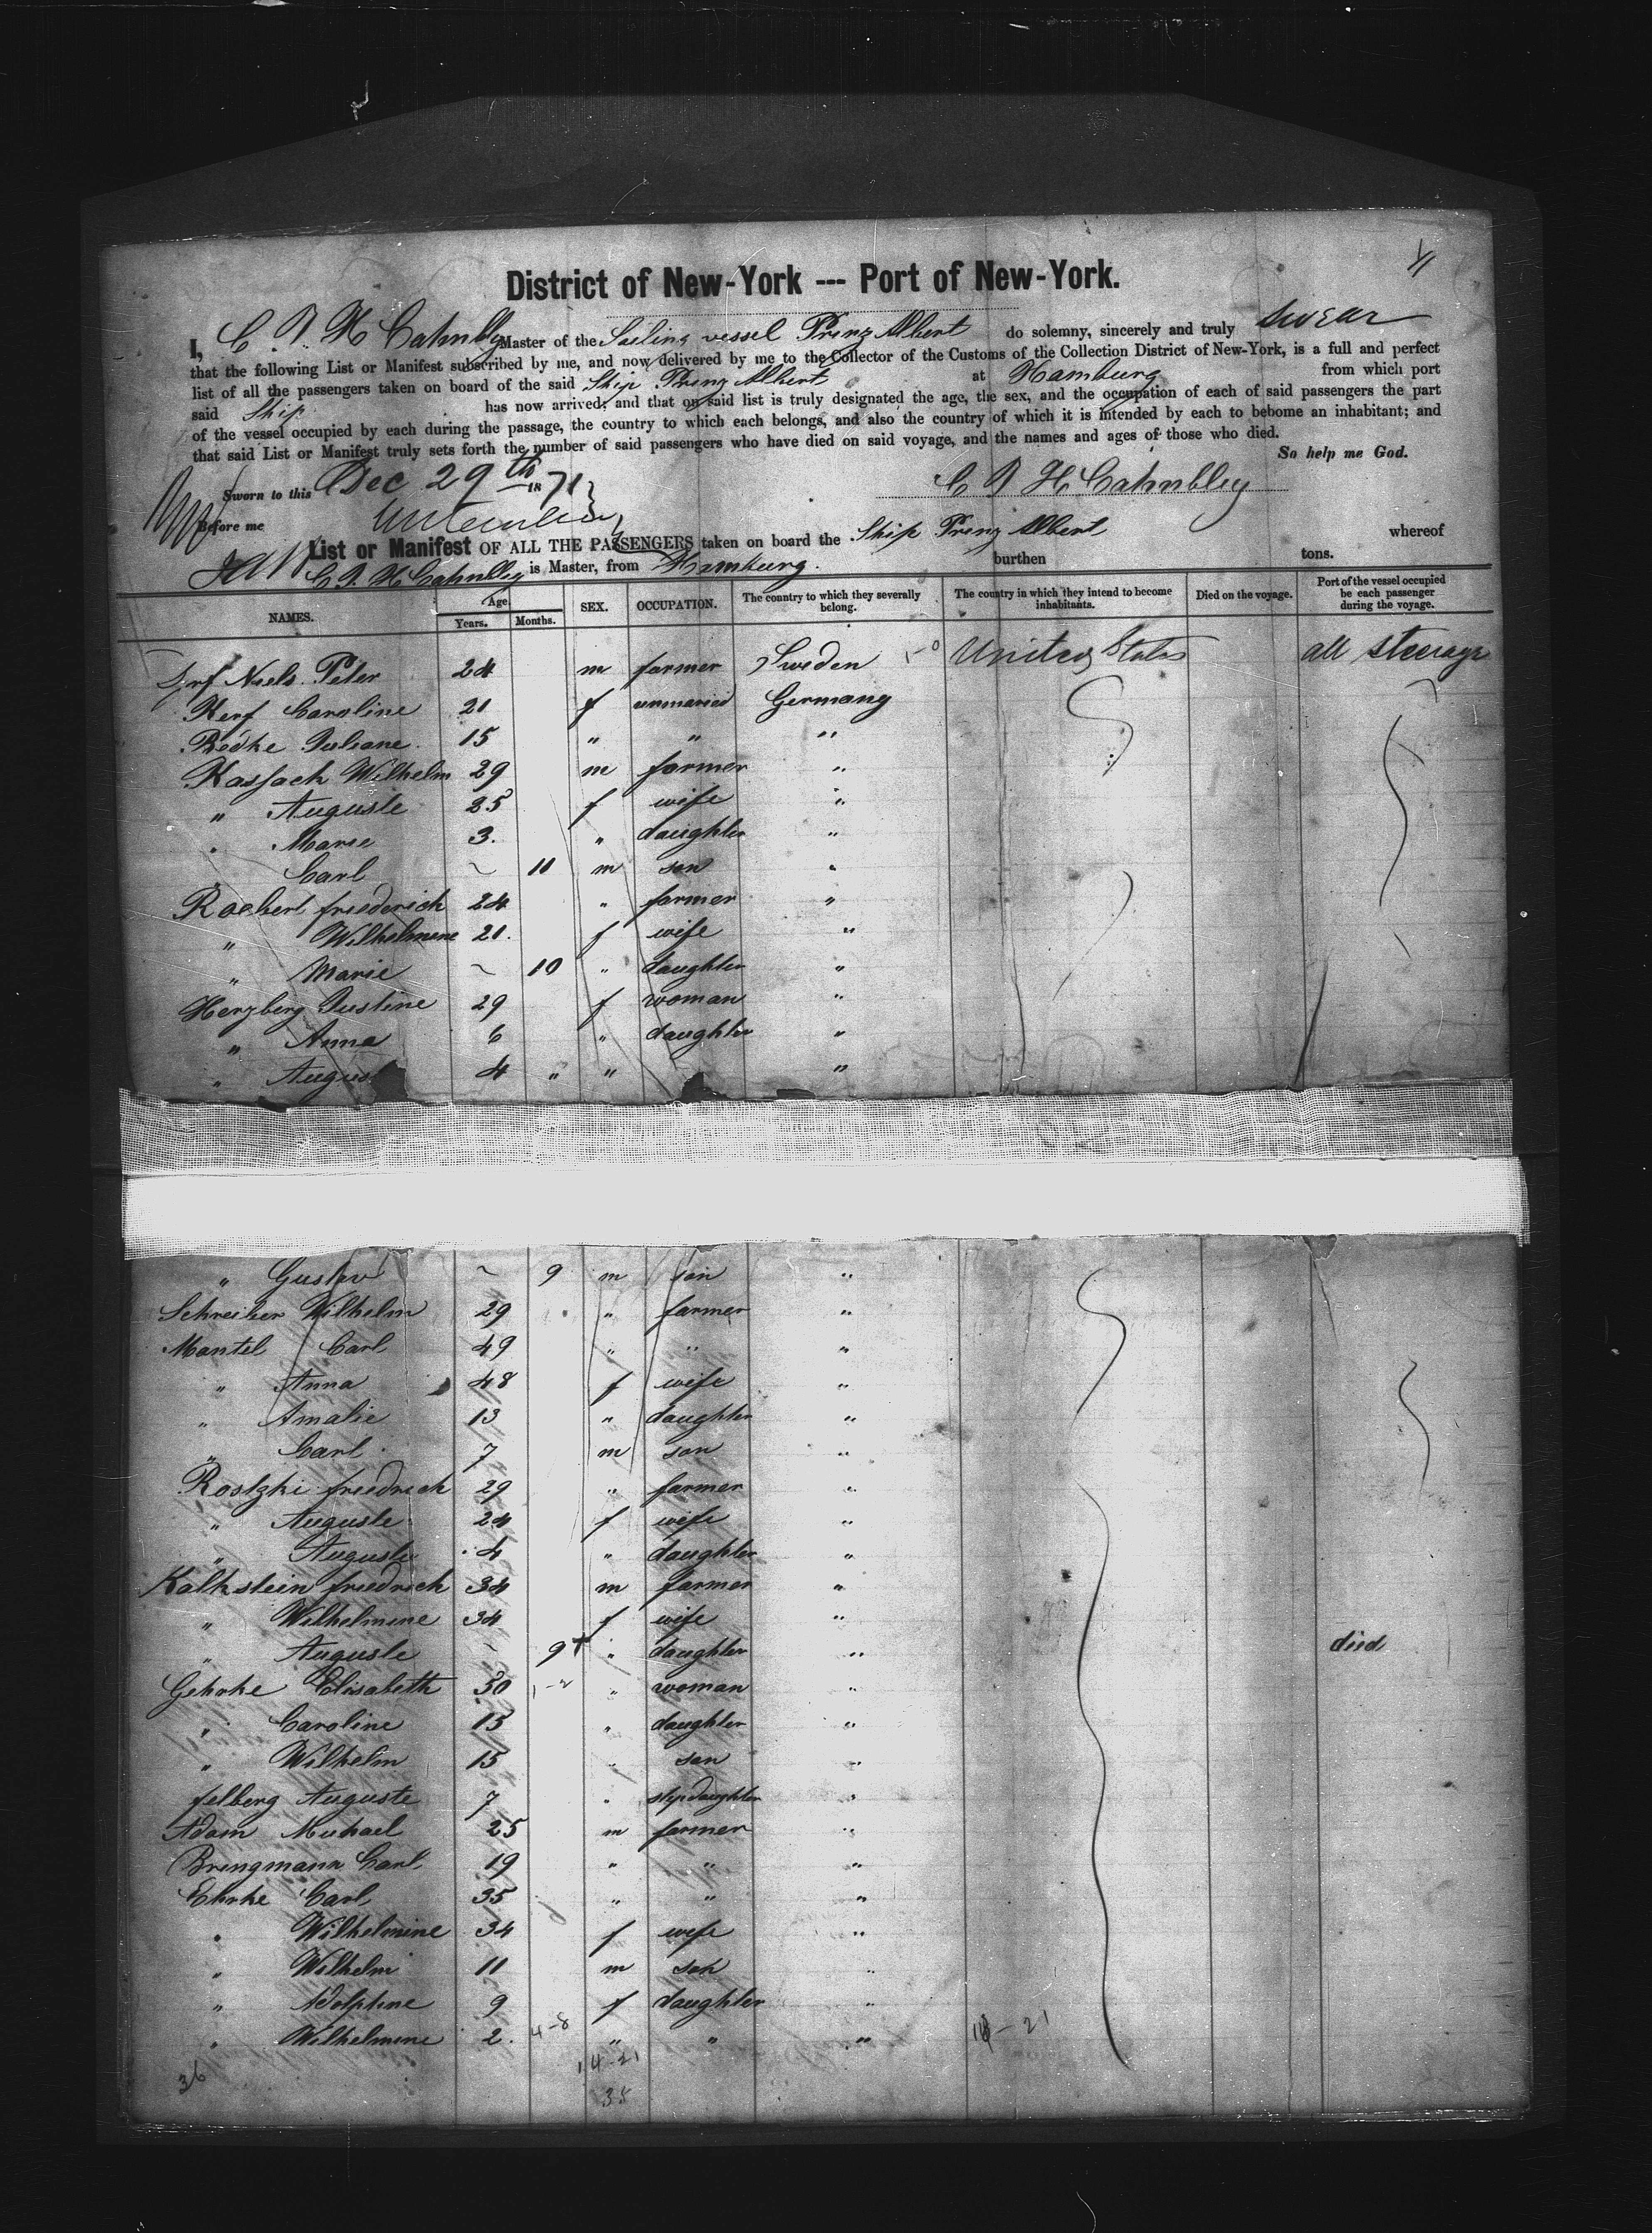 District of New-York --- Port of New-York.
I, C. A. H. Cahnbley Master of the Sailing vessel Prinz Albert do solemny, sincerely and truly swear
that the following List or Manifest subscribed by me, and now delivered by me to the Collector of the Customs of the Collection District of New-York, is a full and perfect
list of all the passengers taken on board of the said Ship Prinz Albert at Hamburg from which port
said Ship has now arrived; and that on said list is truly designated the age, the sex, and the occupation of each of said passengers the part
of the vessel occupied by each during the passage, the country to which each belongs, and also the country of which it is intended by each to bebome an inhabitant; and
that said List or Manifest truly sets forth the number of said passengers who have died on said voyage, and the names and ages of those who died.
So help me God.
Sworn to this Dec 29th 1871
C A H Cahnbley
Before me
List or Manifest OF ALL THE PASSENGERS taken on board the Ship Prinz Albert whereof
C. A. H. Cahnbley is Master, from Hamburg. burthen tons.
NAMES. Age Years. Months. SEX. OCCUPATION. The country to which they severally belong. The country in which they intend to become inhabitants. Died on the voyage. Port of the vessel occupied be each passenger during the voyage.
Niels Peter 24 m farmer Sweden United States all steerage
Herf Caroline 21 f unmaried Germany
Bedke Juliane 15 " " "
Kassack Wilhelm 29 m farmer "
" Auguste 25 f wife "
" Marie 3. " daughter "
" Carl ~ 11 m son "
Raebert friederich 24 " farmer "
" Wilhelmine 21. f wife "
" Marie ~ 10 " daughter "
Herzberg Justine 29 f woman "
" Anna 6 " daughter "
" August 4 " " "
" Gustav ~ 9 m son "
Schreiber Wilhelm 29 " farmer "
Mantel Carl 49 " " "
" Anna 48 f wife "
" Amalie 13 " daughter "
" Carl 7 m son "
Rostzki friedrich 29 " farmer "
" Auguste 24 f wife "
" Auguste 4 " daughter "
Kalkstein friedrich 34 m farmer "
" Wilhelmine 34 f wife "
" Auguste ~ 9 + " daughter " died
Gehrke Elisabeth 30 1-2 " woman "
" Caroline 15 " daughter "
" Wilhelm 15 " son "
felberg Auguste 7 " stepdaughter "
Adam Michael 25 m farmer "
Brengmann Carl 19 " " "
Ehrke Carl 35 " " "
" Wilhelmine 34 f wife "
" Wilhelm 11 m son "
" Adolphine 9 f daughter "
" Wilhelmine 2. 4-8 " " " 14-21
36 14-21
35